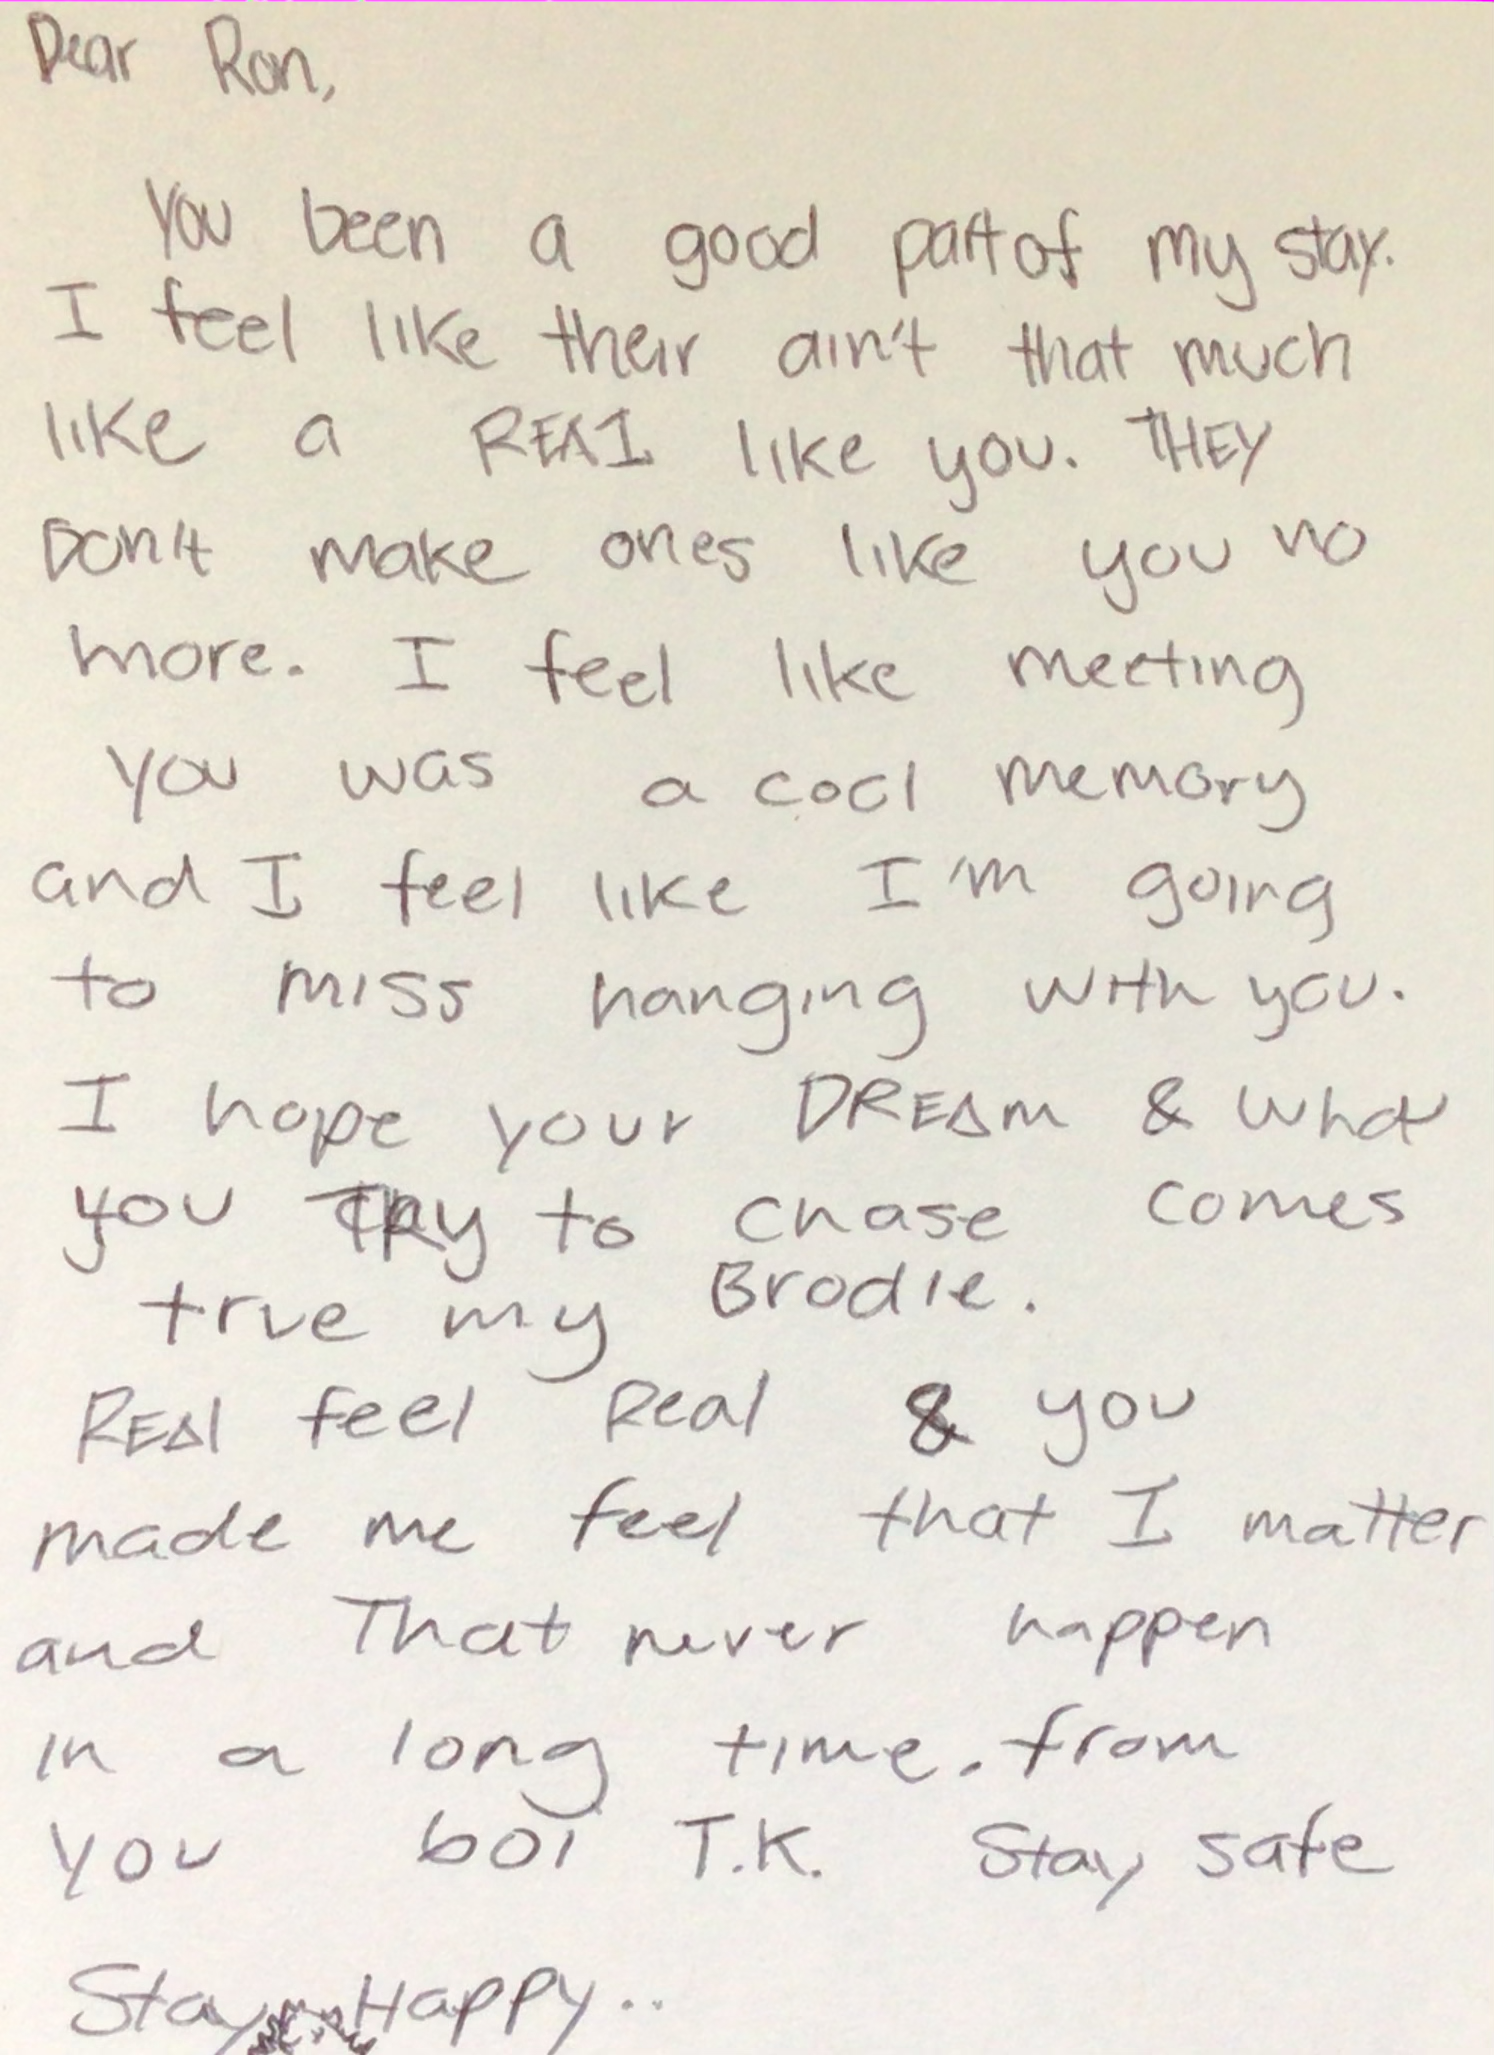 Dear Ron,
You been a good part of my stay.
I feel like their ain't that much
like a REAL like you. THEY
Don't make ones like you no
more. I feel like meeting
you was a cool memory
and I feel like I'm going
to miss hanging with you.
I hope your DREAM & what
you TRY to chase comes
true my Brodie.
REAl feel Real & you
made me feel that I matter
and That never happen
in a long time. from
you boi T.K. Stay safe
Stay Happy..